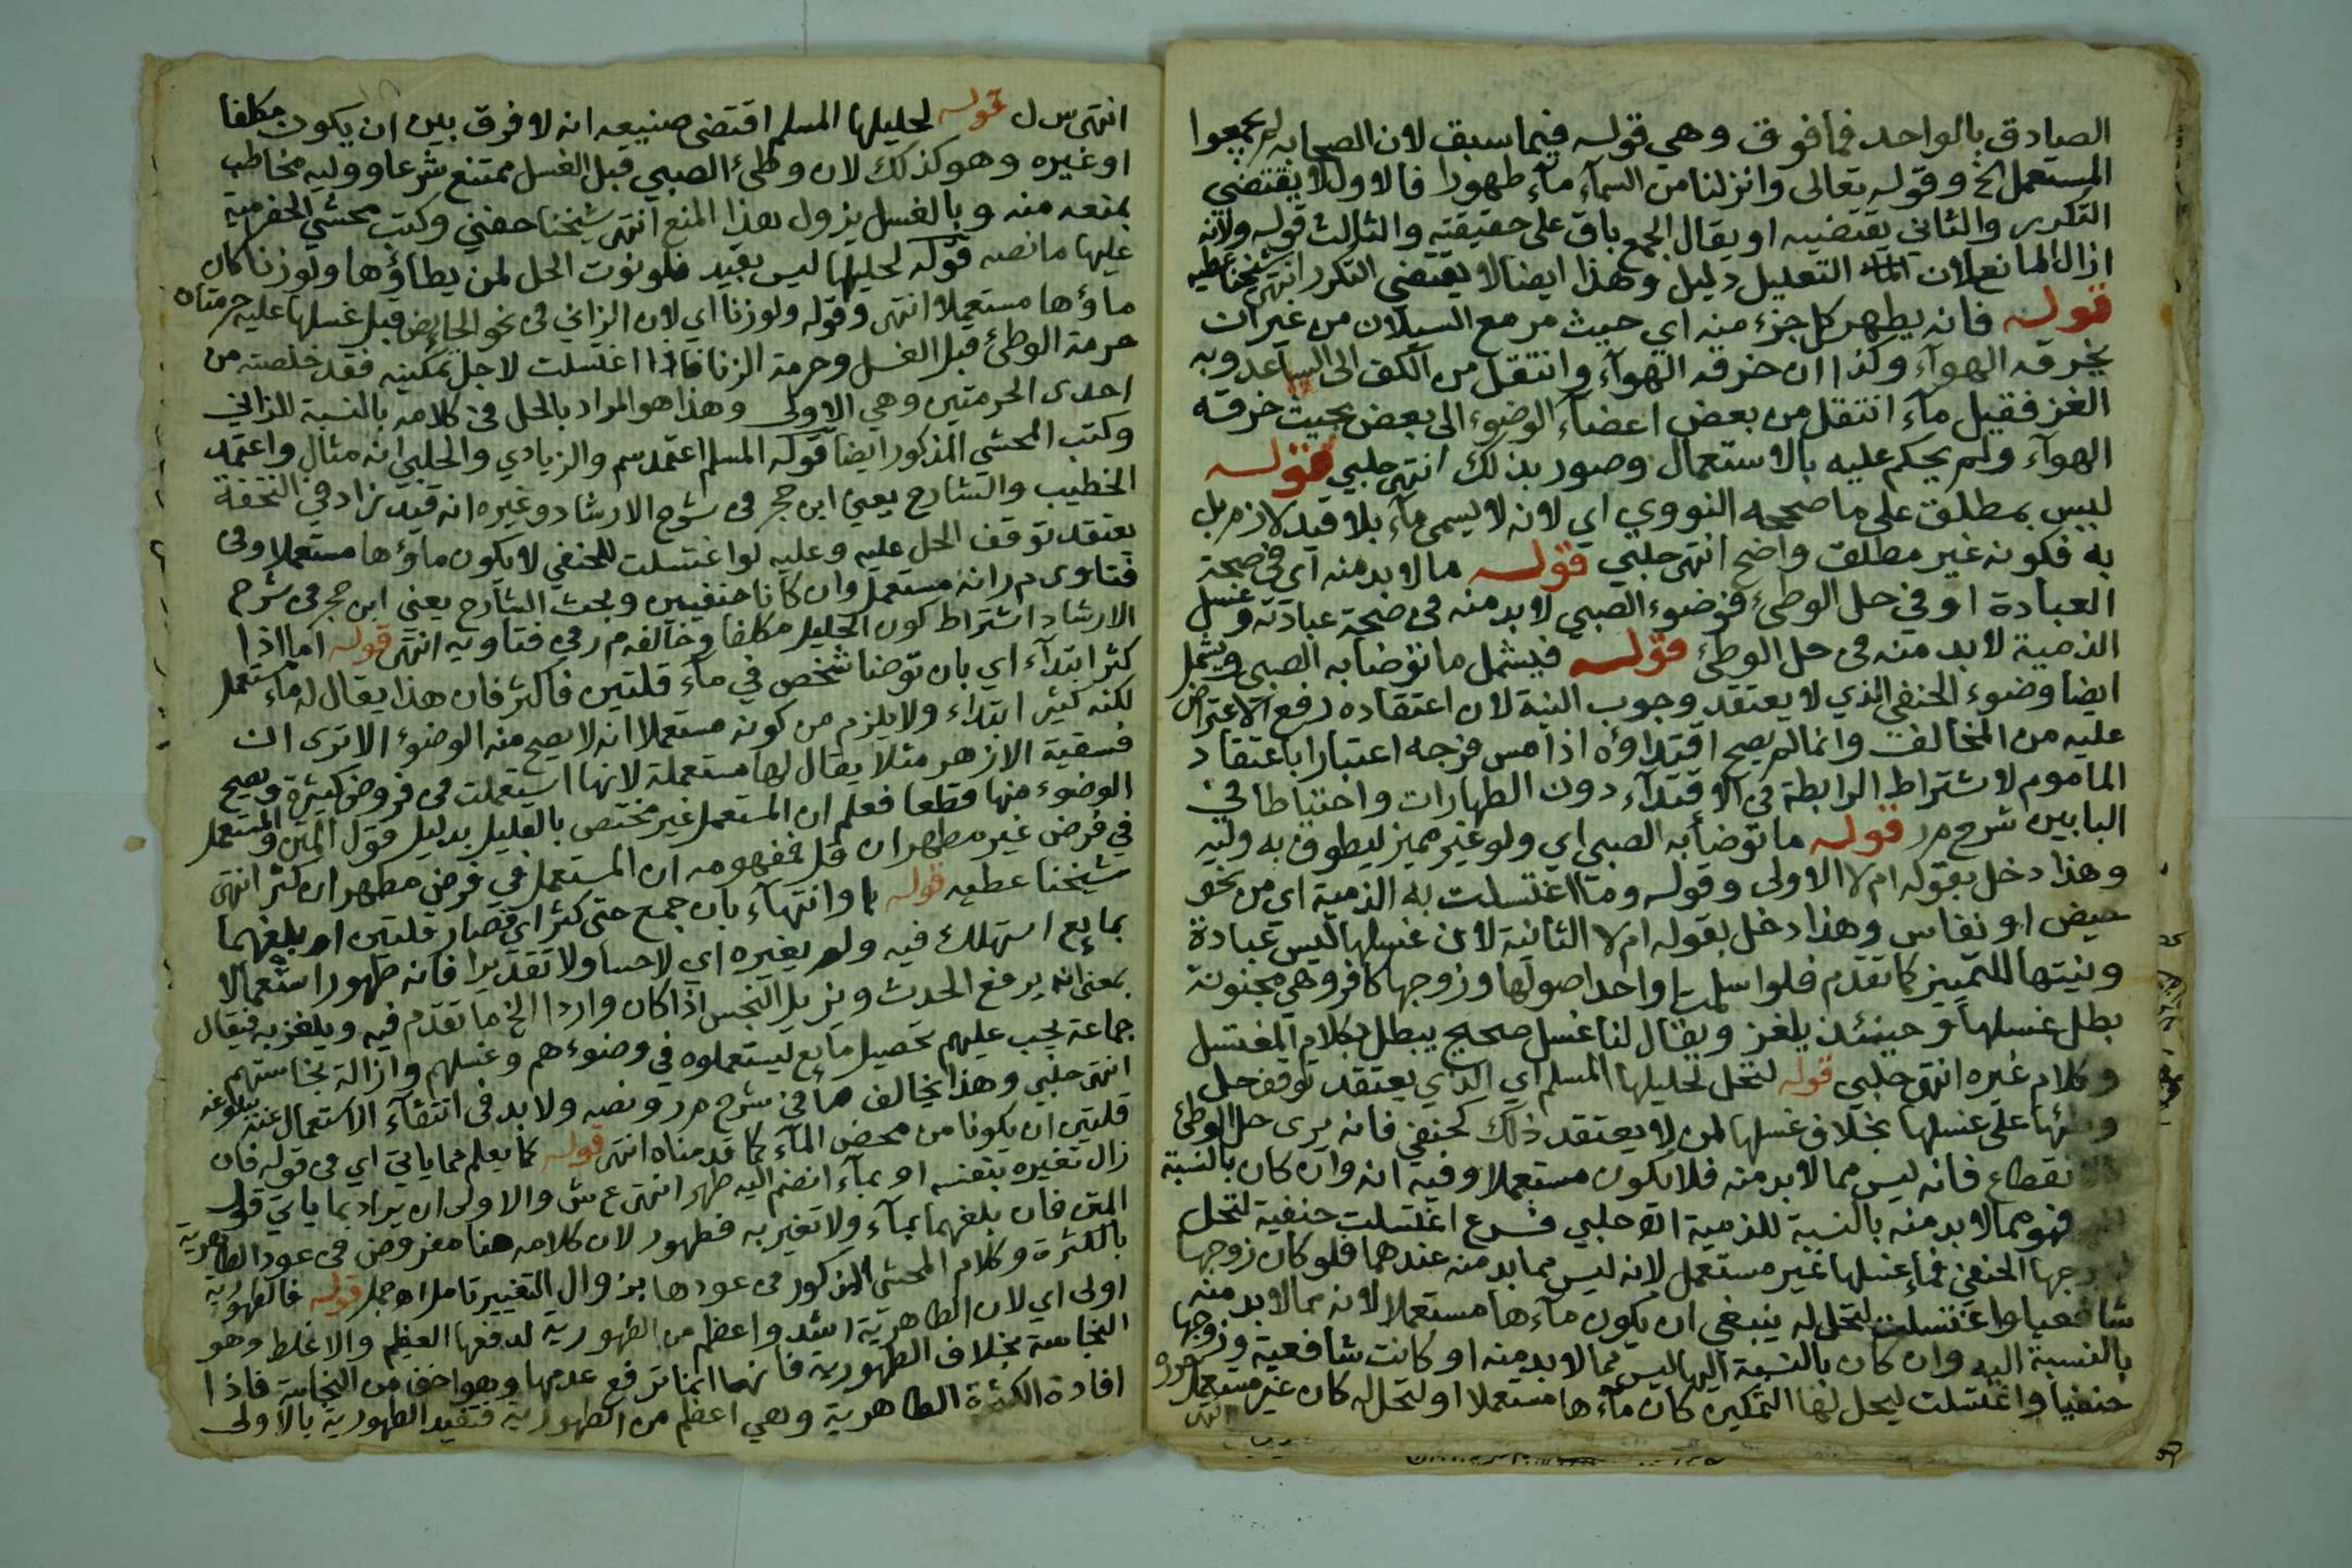 الصادق بالواحد فما فوق وهي قوله فيما سبق لان الصحابة لم يجمعوا
المستعمل الخ وقوله تعالى وانزلنا من السمآء مآء طهورا فالاول لا يقتضي
التكرر والثاني يقتضيه او يقال الجمع باق على حقيقته والثالث قوله ولانه
ازال المانع لان التعليل دليل وهذا ايضا لا يقتضي التكرر انتهى شيخنا عطيه
قوله فانه يطهر كل جزء منه اي حيث مر مع السيلان من غير ان
يخرقه الهوآء وكذا ان خرقه الهوآء وانتقل من الكف الى الساعد وبه
الغز فقيل مآء انتقل من بعض اعضآء الوضوء الى بعض بحيث خرقه
الهوآء ولم يحكم عليه بالاستعمال وصور بذلك انتهى حلبي قوله
ليس بمطلق على ما صححه النووي اي لانه لا يسمى مآء بلا قيد لازم بل
به فكونه غير مطلق واضح انتهى حلبي قوله ما لا بد منه اي في صحة
العبادة او في حل الوطئ فوضوء الصبي لا بد منه في صحة عبادته وغسل
الذمية لا بد منه في حل الوطئ قوله فيشمل ما توضا به الصبي ويشمل
ايضا وضوء الحنفي الذي لا يعتقد وجوب النية لان اعتقاده رفع الاعتراض
عليه من المخالف وانما لم يصح اقتداؤه اذا مس فرجه اعتبارا باعتقاد
الماموم لاشتراط الرابطة في الاقتدآء دون الطهارات واحتياطا في
البابين شرح م ر قوله ما توضا به الصبي اي ولو غير مميز ليطوف به وليه
وهذا دخل بقوله ام لا الاولى وقوله وما اغتسلت به الذمية اي من نحو
حيض او نفاس وهذا دخل بقوله ام لا الثانية لان غسلها ليس عبادة
ونيتها للتمييز كما تقدم فلو اسلمت او احد اصولها وزوجها كافر وهي مجنونة
بطل غسلها وحينئذ يلغز ويقال لنا غسل صحيح يبطل بكلام المغتسل
وكلام غيره انتهى حلبي قوله لتحل لحليلها المسلم اي الذي يعتقد توقف حل
وطئها على غسلها بخلاف غسلها لمن لا يعتقد ذلك كحنفي فانه يرى حل الوطئ
نقطاع فانه ليس مما لا بد منه فلا يكون مستعملا وفيه انه وان كان بالنسبة
فهو مما لا بد منه بالنسبة للذمية اه حلبي فرع اغتسلت حنفية لتحل
لزوجها الحنفي فمآء غسلها غير مستعمل لانه ليس مما بد منه عندهما فلو كان زوجها
شافعيا واغتسلت لتحل له ينبغي ان يكون مآءها مستعملا لانه مما لا بد منه
بالنسبة اليه وان كان بالنسبة اليها ليس مما لا بد منه او كانت شافعية وزوجها
حنفيا واغتسلت ليحل لها التمكين كان مآءها مستعملا او لتحل له كان غير مستعمل
انتهى س ل قوله لحليلها المسلم اقتضى صنيعه انه لا فرق بين ان يكون مكلفا
او غيره وهو كذلك لان وطئ الصبي قبل الغسل ممتنع شرعا ووليه مخاطب
بمنعه منه وبالغسل يزول هذا المنع انتهى شيخنا حفني وكتب محشي الحضرمية
عليها ما نصه قوله لحليلها ليس بقيد فلو نوت الحل لمن يطاؤها ولو زنا كان
ماؤها مستعملا انتهى وقوله ولو زنا اي لان الزاني في نحو الحايض قبل غسلها عليه حرمتان
حرمة الوطئ قبل الغسل وحرمة الزنا فاذا اغتسلت لاجل تمكينه فقد خلصته من
احدى الحرمتين وهي الاولى وهذا هو المراد بالحل في كلامه بالنسبة للزاني
وكتب المحشي المذكور ايضا قوله المسلم اعتمد سم والزيادي والحلبي انه مثال واعتمد
الخطيب والشارح يعني ابن حجر في شرح الارشاد وغيره انه قيد زاد في التحفة
يعتقد توقف الحل عليه وعليه لو اغتسلت للحنفي لا يكون ماؤها مستعملا وفي
فتاوى م ر انه مستعمل وان كانا حنفيين وبحث الشارح يعني ابن حجر في شرح
الارشاد اشتراط كون الحليل مكلفا وخالفه م ر في فتاويه انتهى قوله اما اذا
كثر ابتدآء اي بان توضا شخص في مآء قلتين فاكثر فان هذا يقال له مآء مستعمل
لكنه كثير ابتداء ولا يلزم من كونه مستعملا انه لا يصح منه الوضوء الا ترى ان
فسقية الازهر مثلا يقال لها مستعملة لانها استعملت في فروض كثيرة ويصح
الوضوء منها قطعا فعلم ان المستعمل غير مختص بالقليل بدليل قول المتن والمستعمل
في فرض غير مطهر ان قل فمفهومه ان المستعمل في فرض مطهر ان كثر انتهى
شيخنا عطيه قوله او انتهآء بان جمع حتى كثر اي فصار قلتين او بلغهما
بمايع استهلك فيه ولم يغيره اي لا حسا ولا تقديرا فانه طهور استعمالا
بمعنى انه يرفع الحدث ويزيل النجس اذا كان واردا الخ ما تقدم فيه ويلغز به فيقال
جماعة يجب عليهم تحصيل مايع ليستعملوه في وضوءهم وغسلهم وازالة نجاستهم
انتهى حلبي وهذا يخالف ما في شرح م ر ونصه ولا بد في انتفآء الاستعمال عنه ببلوغه
قلتين ان يكونا من محض المآء كما قدمناه انتهى قوله كما يعلم مما ياتي اي في قوله فان
زال تغيره بنفسه او بمآء انضم اليه طهر انتهى ع ش والاولى ان يراد بما ياتي قول
المتن فان بلغهما بمآء ولا تغير به فطهور لان كلامه هنا مفروض في عود الطاهرية
بالكثرة وكلام المحشي المذكور في عودها بزوال التغيير تامل اه جمل قوله فالطهورية
اولى اي لان الطاهرية اشد واعظم من الطهورية لدفعها العظيم والاغلظ وهو
النجاسة بخلاف الطهورية فانها انما ترفع عدمها وهو اخف من النجاسة فاذا
افادة الكثرة الطاهرية وهي اعظم من الطهورية فتفيد الطهورية بالاولى